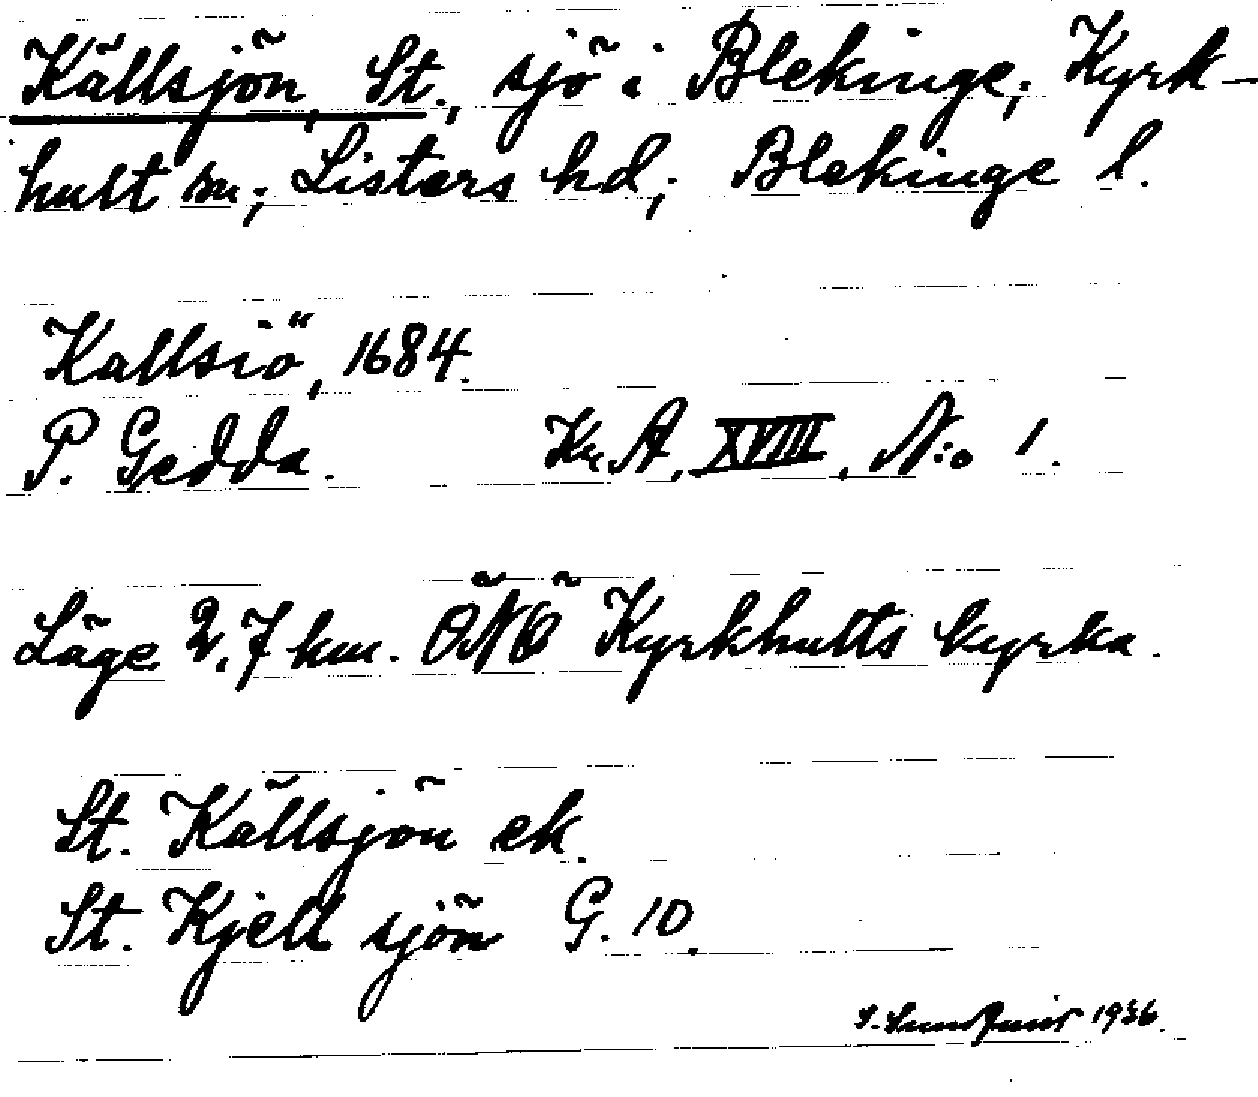 Källsjön, St., sjö i Blekinge; Kyrk-
hult sn; Listers hd; Blekinge l.
Kallsiö, 1684.
P. Gedda. Kr. A. XVIII, N:o 1.
Läge 2,7 km. ÖNÖ Kyrkhults kyrka.
St. Källsjön ek.
St. Kjell sjön G. 10.
1936.